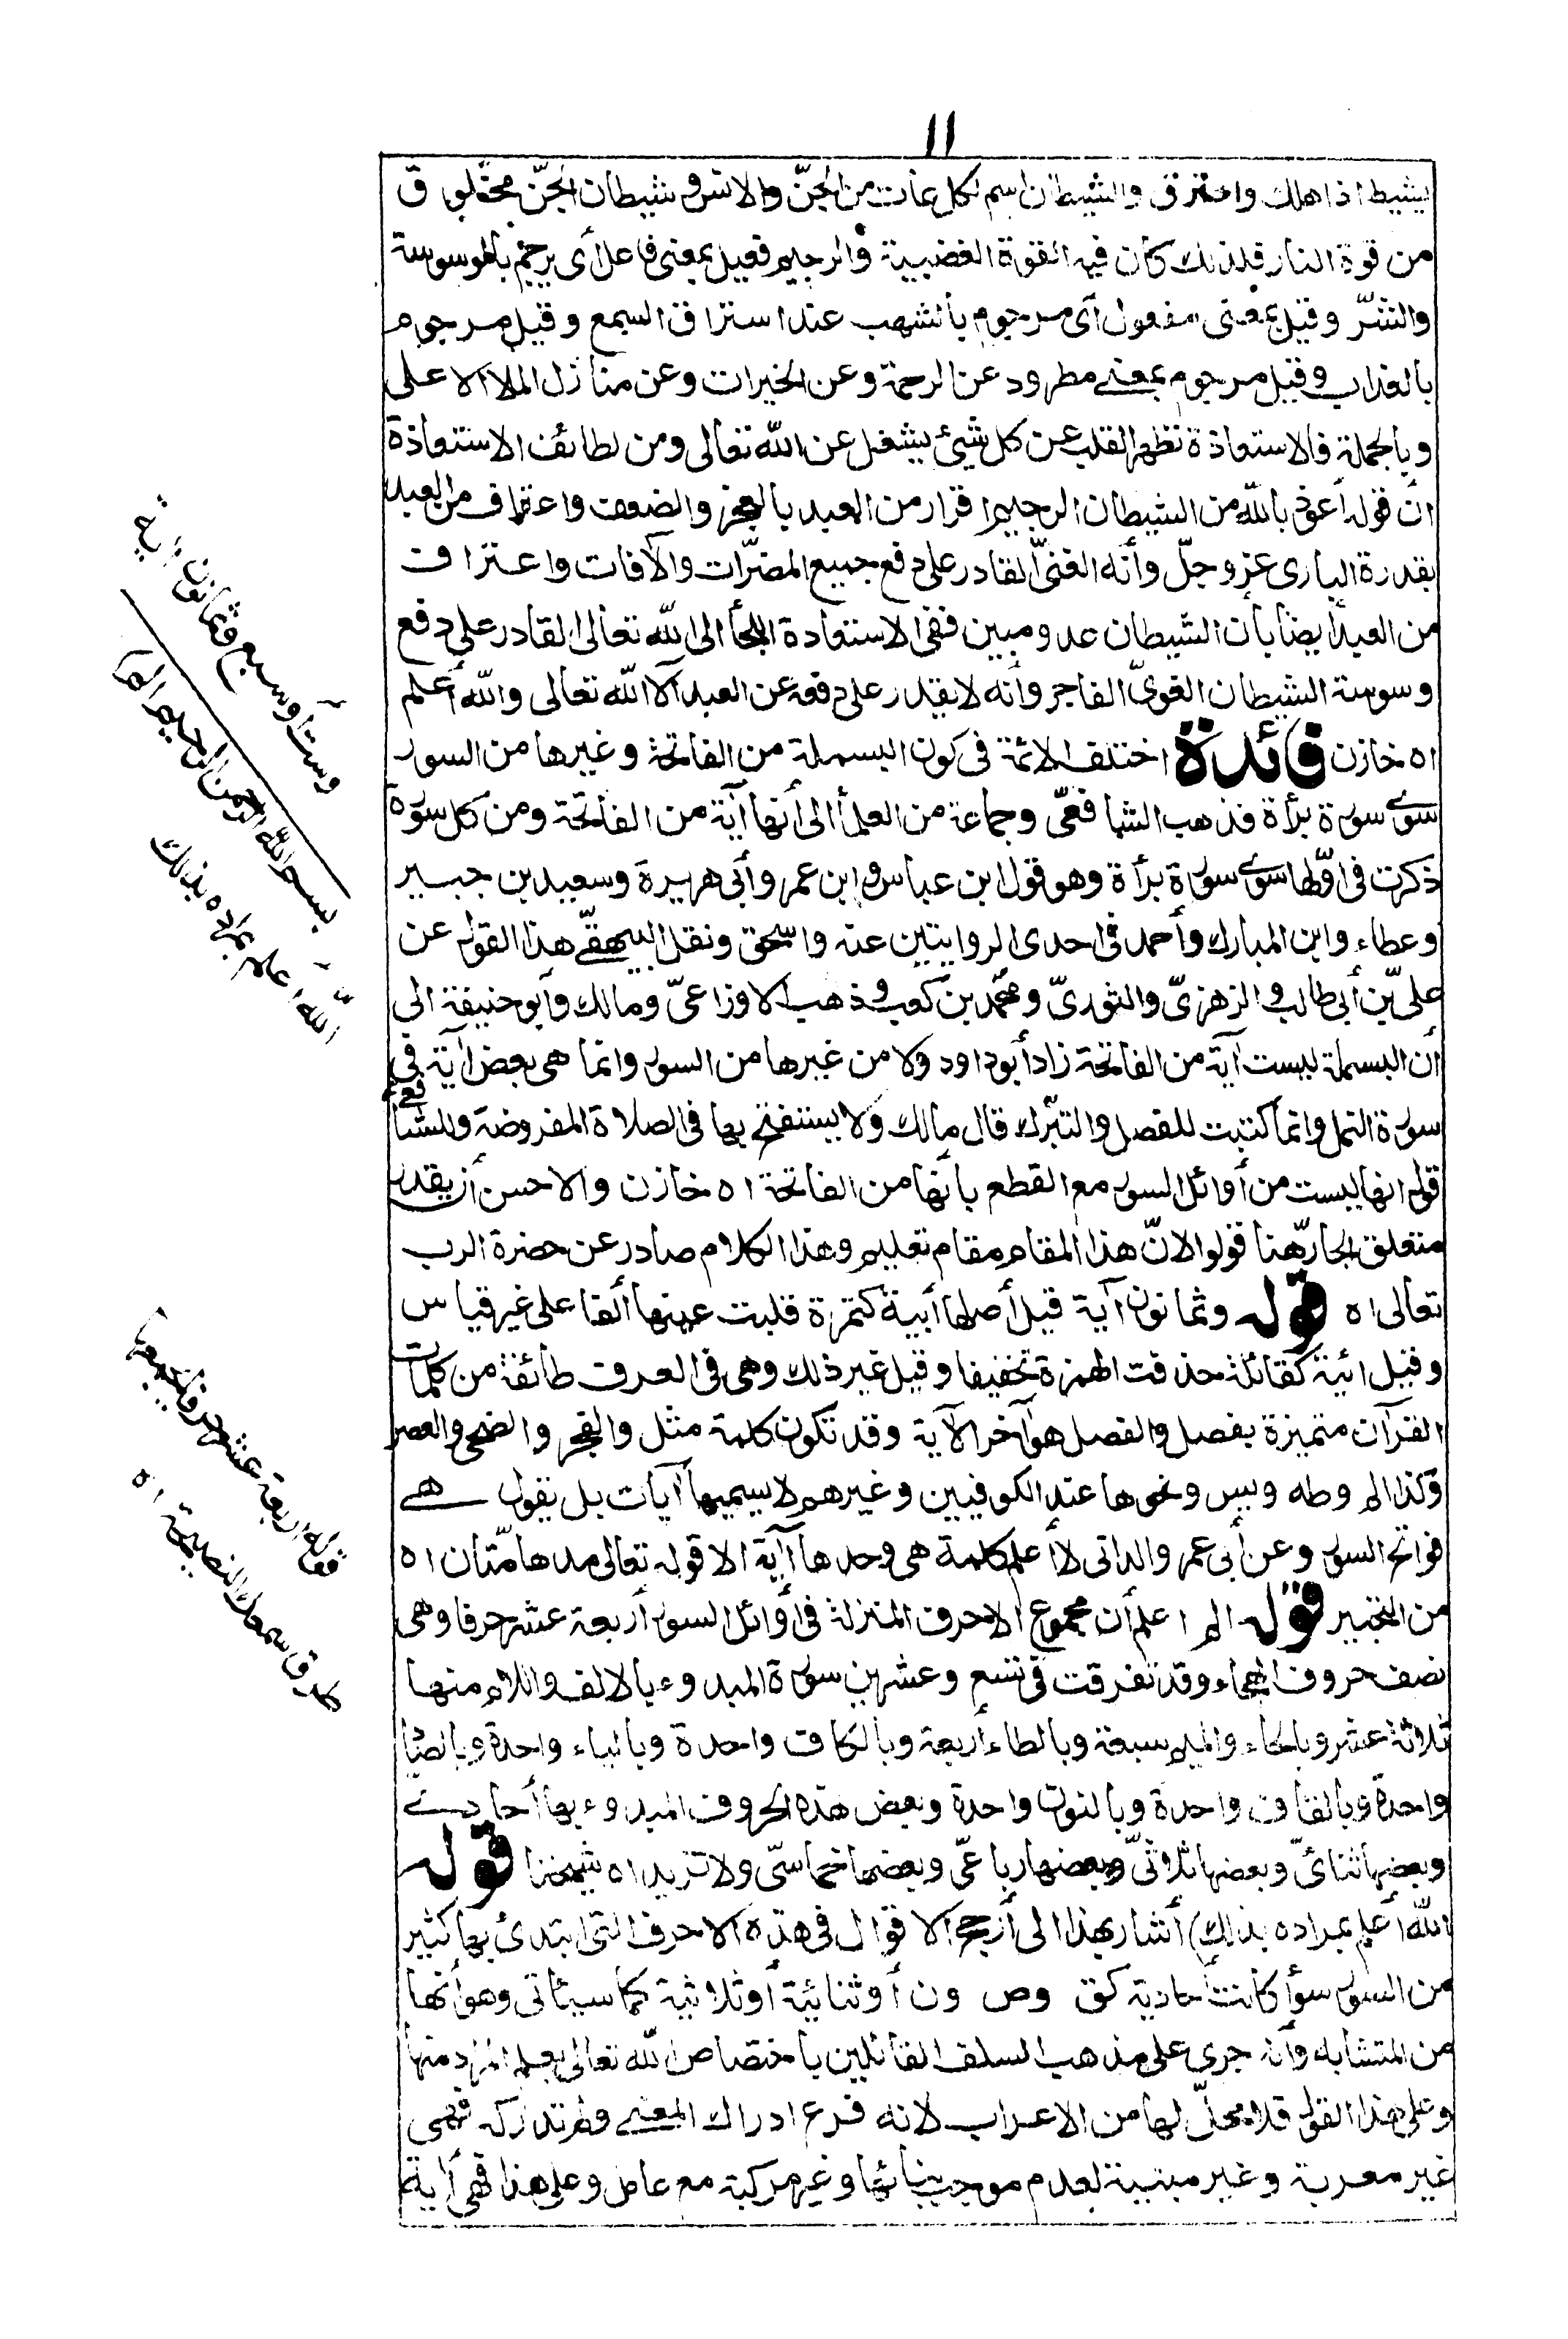 ١١
يشيط اذا هلك واحترق والشيطان اسم لكل عات من الجنّ والانس وشيطان الجنّ مخلوق
من قوّة النار فلذلك كان فيه القوّة الغضبية والرجيم فعيل بمعنى فاعل أى يرجم بالوسوسة
والشرّ وقيل بمعنى مفعول أى مرجوم بالشهب عند استراق السمع وقيل مرجوم
بالعذاب وقيل مرجوم بمعنى مطرود عن الرحمة وعن الخيرات وعن منازل الملأ الاعلى
وبالجملة فالاستعاذة تطهر القلب عن كل شيئ يشغل عن الله تعالى ومن لطائف الاستعاذة
ان قوله أعوذ بالله من الشيطان الرجيم اقرار من العبد بالعجز والضعف واعتراف من العبد
بقدرة البارى عزوجلّ وأنه الغنىّ القادر على دفع جميع المضرّات والآفات واعتراف
من العبد أيضا بأن الشيطان عدو مبين ففى الاستعاذة اللجأ الى الله تعالى القادر على دفع
وسوسة الشيطان الغوىّ الفاجر وأنه لا يقدر على دفعه عن العبد الا الله تعالى والله أعلم
اه خازن فائدة اختلف الائمة فى كون البسملة من الفاتحة وغيرها من السور
سوى سورة برأة فذهب الشافعىّ وجماعة من العلمأ الى أنها آية من الفاتحة ومن كل سورة
ذكرت فى اوّلها سوى سورة برأة وهو قول ابن عباس وابن عمر وأبى هريرة وسعيد بن جبير
وعطاء وابن المبارك وأحمد فى احدى الروايتين عنه واسحق ونقل البيهقىّ هذا القول عن
علىّ بن أبى طالب والزهرىّ والثورىّ ومحمد بن كعب وذهب الاوزاعىّ ومالك وأبو حنيفة الى
أن البسملة ليست آية من الفاتحة زاد أبو داود ولا من غيرها من السور وانما هى بعض آية فى
سورة النمل وانما كتبت للفصل والتبرّك قال مالك ولا يستفتح بها فى الصلاة المفروضة وللشافعى
قول انها ليست من أوائل السور مع القطع بأنها من الفاتحة اه خازن والاحسن أن يقدر
متعلق الجارّ هنا قولوا لانّ هذا المقام مقام تعليم وهذا الكلام صادر عن حضرة الرب
تعالى اه قوله وثمانون آية قيل أصلها أيية كتمرة قلبت عينها ألفا على غير قياس
وقيل ائية كقائلة حذفت الهمزة تخفيفا وقيل غير ذلك وهى فى العرف طائفة من كلمات
القرآن متميزة بفصل والفصل هو آخر الآية وقد تكون كلمة مثل والفجر والضحى والعصر
وكذا الم وطه ويس ونحوها عند الكوفيين وغيرهم لا يسميها آيات بل يقول هى
فواتح السور وعن أبى عمر والدانى لا أعلم كلمة هى وحدها آية الا قوله تعالى مدهامّتان اه
من التحبير قوله الم اعلم أن مجموع الاحرف المنزلة فى أوائل السور أربعة عشر حرفا وهى
نصف حروف الهجاء وقد تفرقت فى تسع وعشرين سورة المبدوء بالالف واللام منها
ثلاثة عشر وبالحاء والميم سبعة وبالطاء أربعة وبالكاف واحدة وبالياء واحدة وبالصاد
واحدة وبالقاف واحدة وبالنون واحدة وبعض هذه الحروف المبدوء بها أحادىّ
وبعضها ثنائىّ وبعضها ثلاثىّ وبعضها رباعىّ وبعضها خماسىّ ولا تزيد اه شيخنا قوله
الله أعلم بمراده بذلك) أشار بهذا الى أرجح الاقوال فى هذه الاحرف التى ابتدئ بها كثير
من السور سوأ كانت أحادية كق وص ون أو ثنائية أو ثلاثية كما سيأتى وهو أنها
من المتشابه وأنه جرى على مذهب السلف القائلين باختصاص الله تعالى بعلم المراد منها
وعلى هذا القول فلا محلّ لها من الاعراب لانه فرع ادراك المعنى ولم ندركه فهى
غير معربة وغير مبنية لعدم موجب بنائها وغير مركبة مع عامل وعلى هذا فهى آية
وست أوسبع وثمانون آية
بسم الله الرحمن الرحيم الم
الله اعلم بمراده بذلك
قوله اربعة عشر حرفا